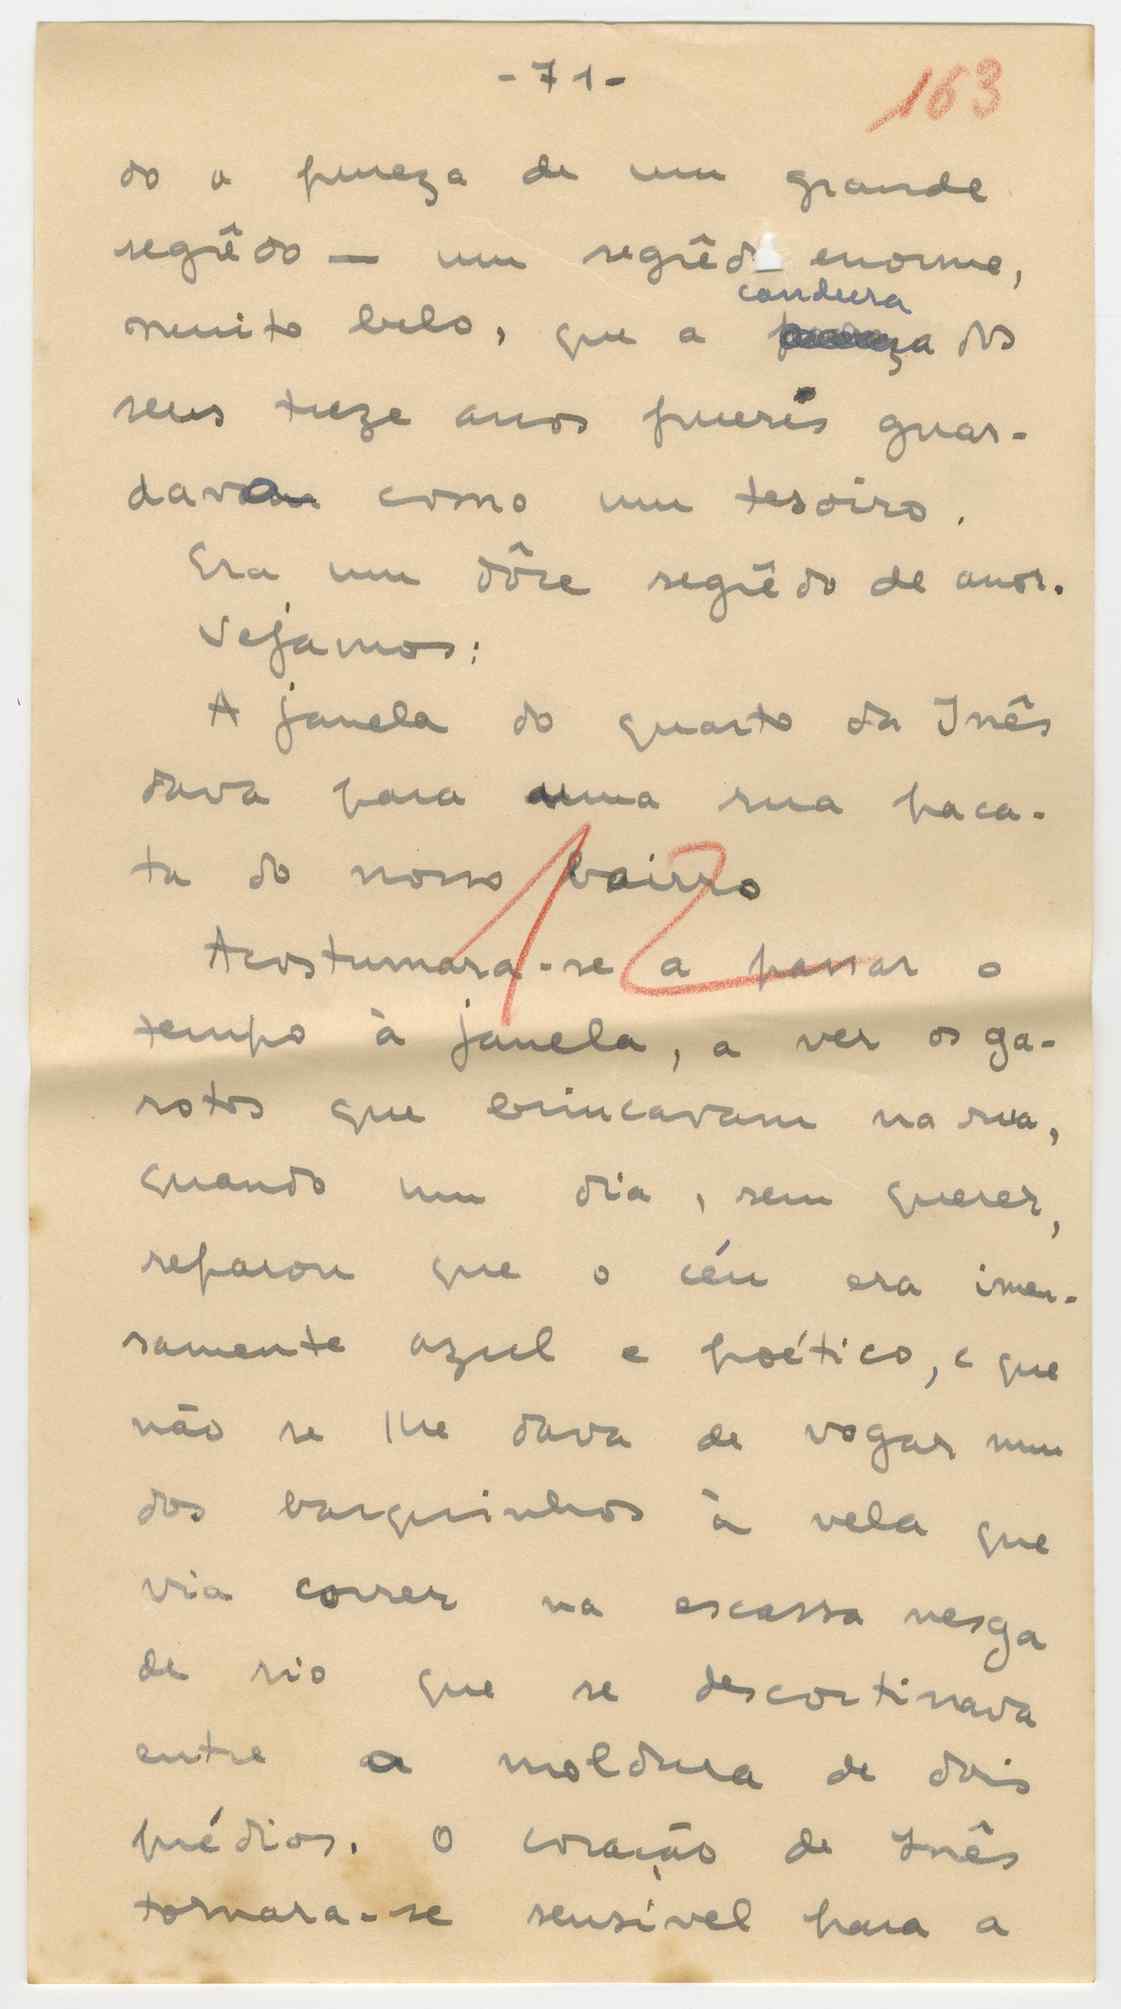 - 71 -
163
do a pureza de um grande
segrêdo — um segrêdo enorme,
candura
muito belo, que a pureza dos
seus treze anos pueris guar-
davam como um tesoiro.
Era um dôce segrêdo de amor.
Vejamos:
A janela do quarto da Inês
dava para uma rua paca-
ta do nosso bairro
12
Acostumara-se a passar o
tempo à janela, a ver os ga-
rotos que brincavam na rua,
quando um dia, sem querer,
reparou que o céu era imen-
samente azul e poético, e que
não se lhe dava de vogar num
dos barquinhos à vela que
via correr na escassa nesga
de rio que se descortinava
entre a moldura de dois
prédios. O coração de Inês
tornara-se sensível para a